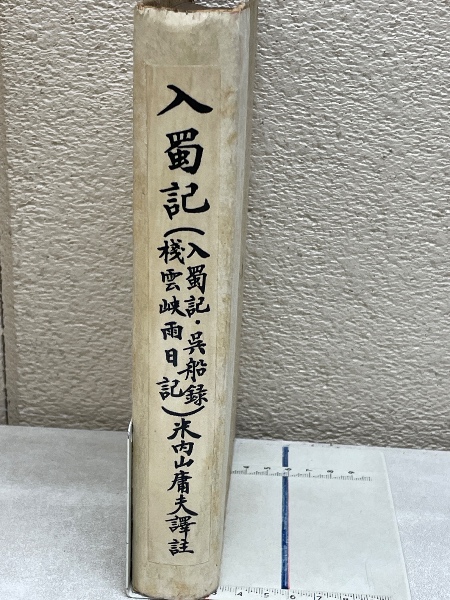 入蜀記(入蜀記・呉船録
棧雲峡雨日記)米内山庸夫譯註